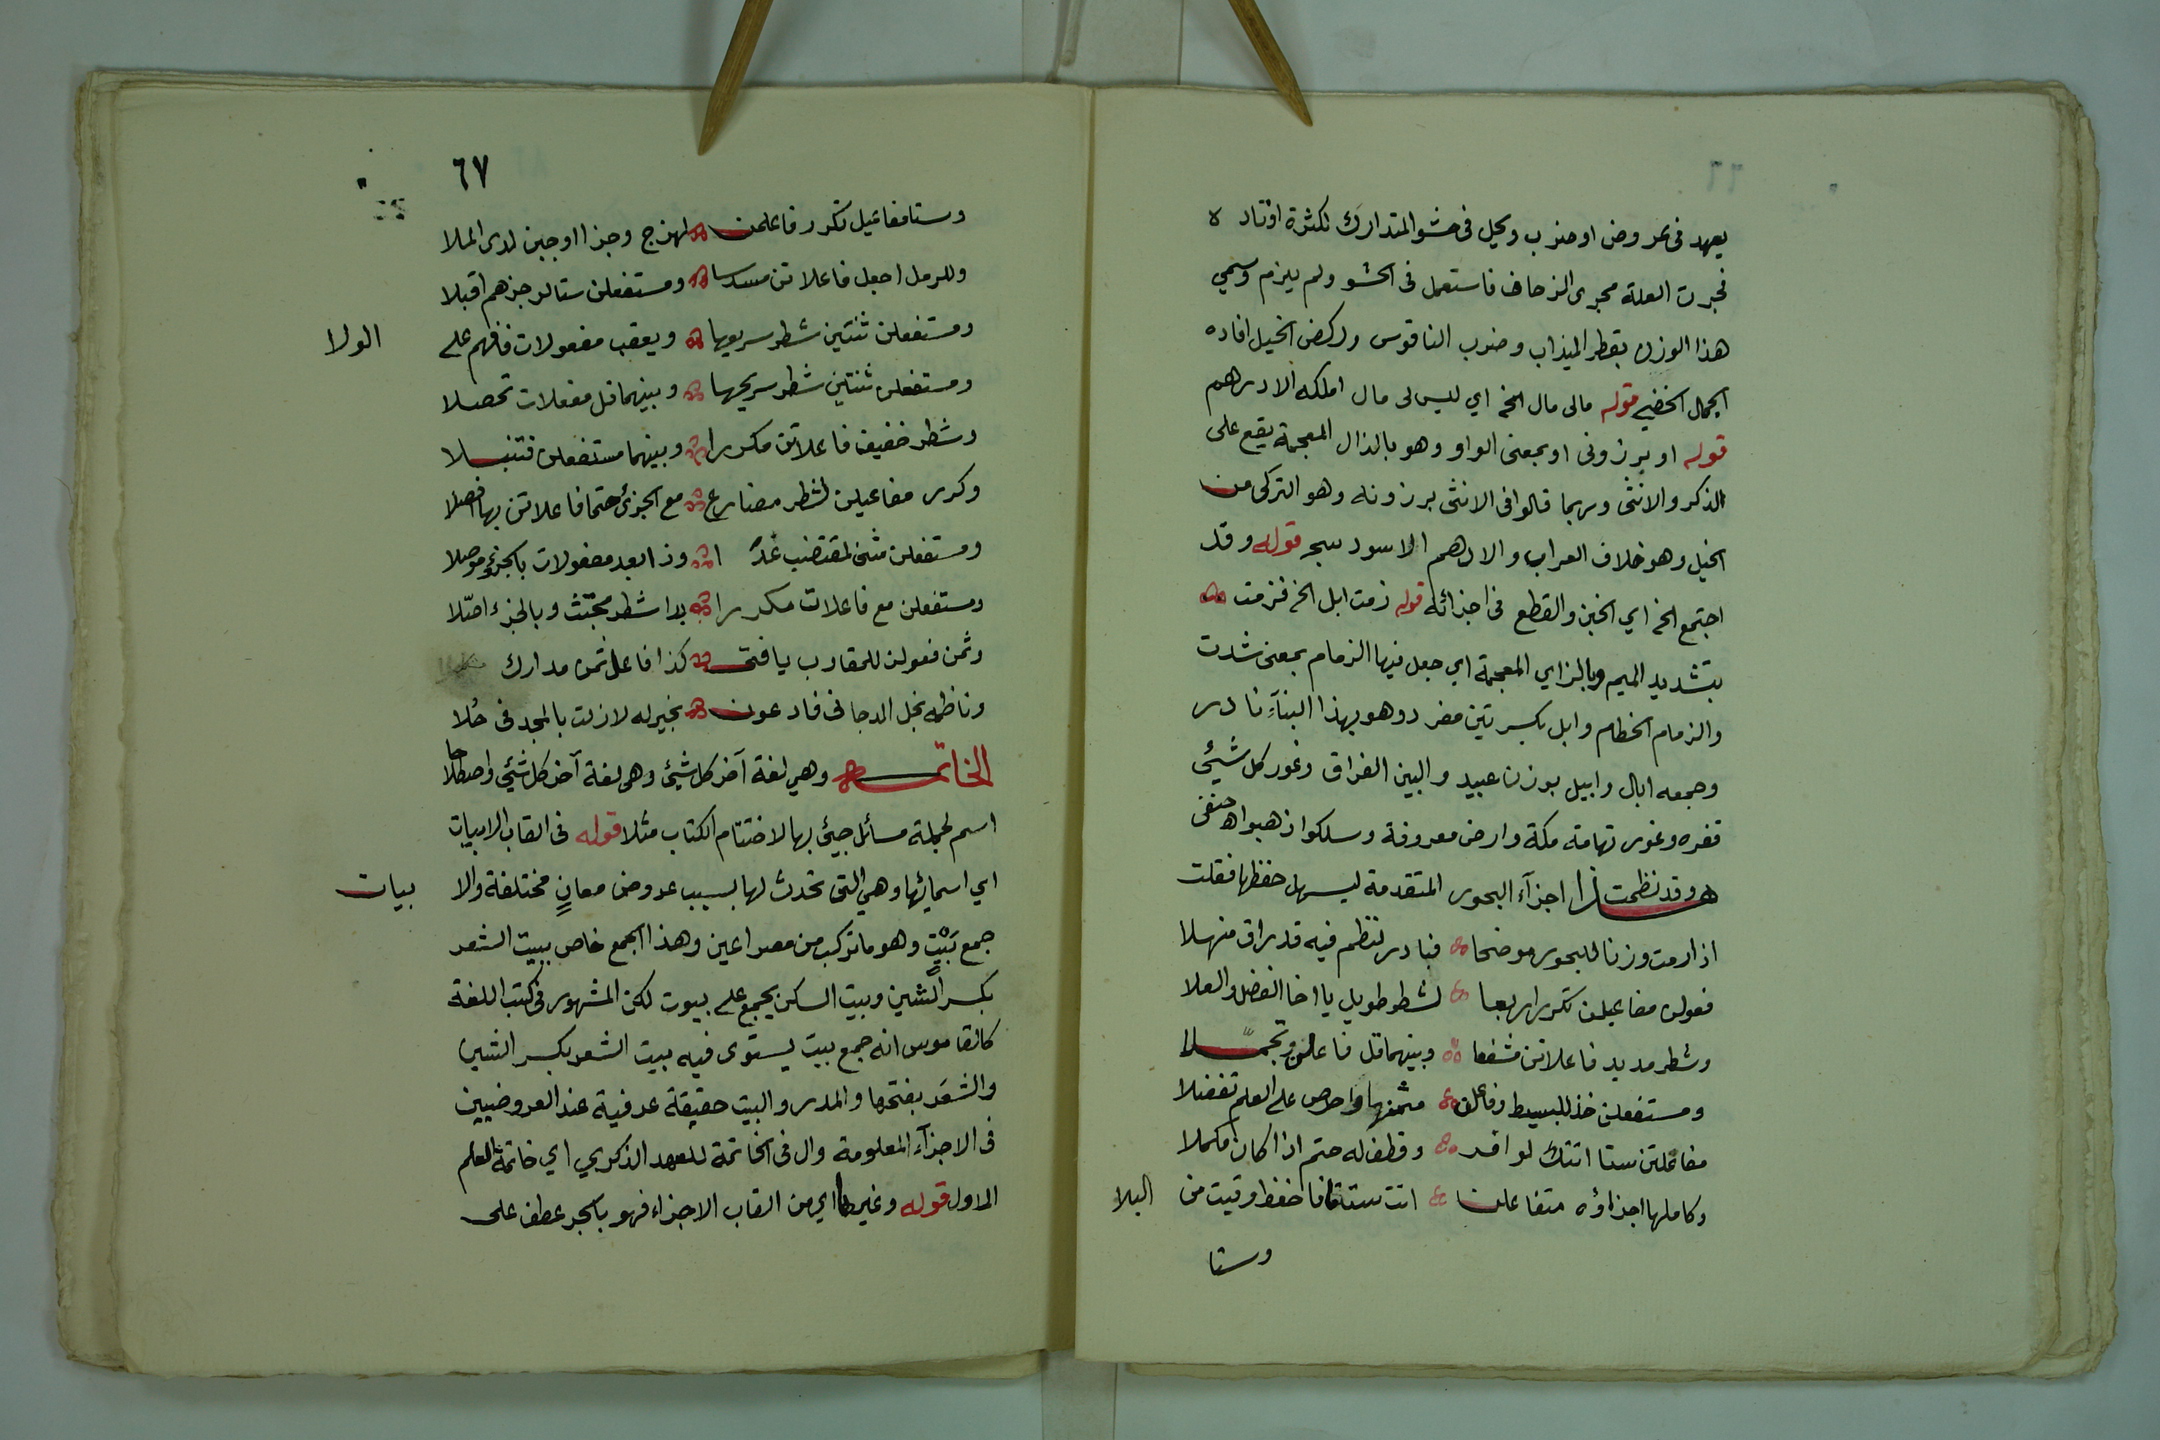 ٦٦
يعهد فى عروض او ضرب ويحيل فى حشو المتدارك لكثرة اوتاده
فجرت العلة مجرى الزحاف فاستعمل فى الحشو ولم يلزم وسمي
هذا الوزن بقطر الميزاب وضرب الناقوس وركض الخيل افاده
الجمال الحضيري قوله مالى مال الخ اي ليس لى مال املكه الا درهم
قوله او برذونى او بمعنى الواو وهو بالذال المعجمة يقع على
الذكر والانثى وربما قالوا فى الانثى برذونه وهو التركى من
الخيل وهو خلاف العراب والادهم الاسود قوله وقد
اجتمع الخ اي الخبن والقطع فى اجزائه قوله زمت ابل الخ فزمت
بتشديد الميم وبالزاي المعجمة اي جعل فيها الزمام بمعنى شدت
والزمام الخطام وابل بكسرتين مفرد وهو بهذا البنآء نادر
وجمعه ابال وابيل بوزن عبيد والبين الفراق وغور كل شيئ
قعره وغور تهامة مكة وارض معروفة وسلكوا ذهبوا اه حنفى
هذا وقد نظمت اجزآء البحور المتقدمة ليسهل حفظها فقلت
اذا رمت وزنا للبحور موضحا فبادر لنظم فيه قد راق منهلا
فعولن مفاعيلن تكرر اربعا لشطر طويل يا اخا الفضل والعلا
وشطر مديد فاعلاتن مشفعا وبينهما قل فاعلن وتجملا
ومستفعلن خذ للبسيط وفاعلن مثمنها واحرص على العلم تفضلا
مفاعلتن ستا اتتك لوافر وقطف له حتم اذا كان مكملا
وكاملها اجزاؤه متفاعلن اتت ستة فاحفظ وقيت من البلا
وستا
٦٧
وستا مفاعيل تكرر فاعلمن لهزج وجزا اوجبن لدى الملا
وللرمل اجعل فاعلاتن مسدسا ومستفعلن ستا لرجزهم اقبلا
ومستفعلن ثنتين شطر سريعها ويعقب مفعولات فافهم على الولا
ومستفعلن ثنتين شطر سريحها وبينهما قل مفعلات تحصلا
وشطر خفيف فاعلاتن مكررا وبينهما مستفعلن فتنبلا
وكرر مفاعيلن لشطر مضارع مع الجزئ حتما فاعلاتن بها افصلا
ومستفعلن مثنى لمقتضب غدا وذا بعد مفعولات بالجزئ موصلا
ومستفعلن مع فاعلات مكررا بدا شطر مجتث وبالجزء اصّلا
وثمن فعولن للمقارب يا فتى كذا فاعل ثمن مدارك
وناظمه نجل الدجانى فادعون بخير له لازلت بالمجد فى حُلا
الخاتمه وهي لغة آخر كل شيئ وهى لغة آخر كل شيئ واصطلاحا
اسم لجملة مسائل جيئ بها لاختتام الكتاب مثلا قوله فى القاب الابيات
اي اسمائها وهي التى تحدث لها بسبب عروض معانٍ مختلفة والابيات
جمع بَيْتٍ وهو ما تركب من مصراعين وهذا الجمع خاص ببيت الشعر
بكسر الشين وبيت السكن يجمع على بيوت لكن المشهور فى كتب اللغة
كالقاموس انه جمع بيت يستوى فيه بيت الشعر بكسر الشين
والشعَر بفتحها والمدر والبيت حقيقة عرفية عند العروضيين
فى الاجزآء المعلومة وال فى الخاتمة للعهد الذكري اي خاتمة العلم
الاول قوله وغيرها اي من القاب الاجزاء فهو بالجر عطف على